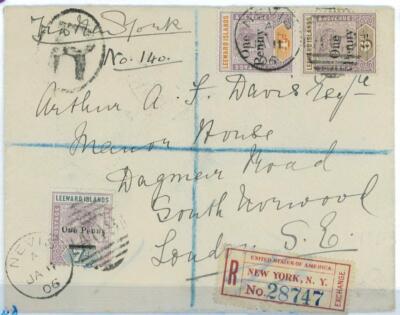 No. 140.
R
NEVIS
LEEWARD ISLANDS
One Penny
LEEWARD ISLANDS
One Penny
Arthur A. F. Davis Esqre
Manor House
Dagmar Road
South Norwood
London S.E.
LEEWARD ISLANDS
One Penny
NEVIS
A
JA 11
06
R
UNITED STATES OF AMERICA.
NEW YORK, N. Y.
No. 28747
EXCHANGE